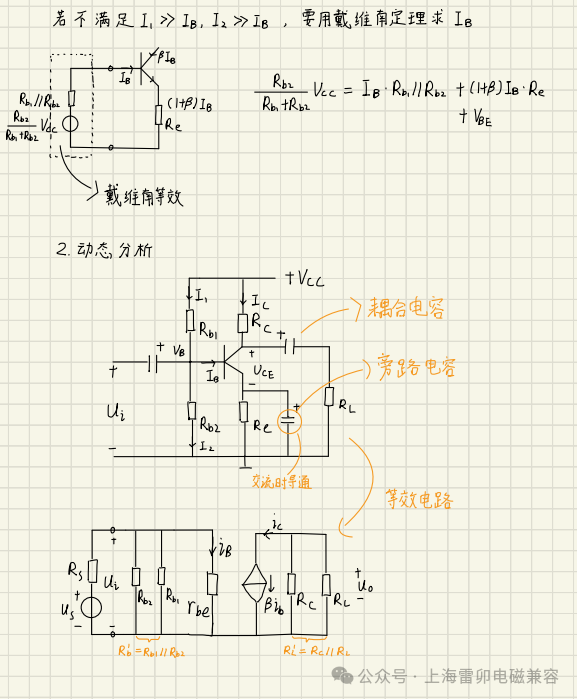 若不满足 I₁≫I_B, I₂≫I_B, 要用戴维南定理求 I_B
βI_B
I_B
R_b1//R_b2
(1+β)I_B
R_b2/(R_b1+R_b2) V_CC
R_e
R_b2/(R_b1+R_b2) V_CC = I_B·R_b1//R_b2 + (1+β)I_B·R_e
+ V_BE
戴维南等效
2. 动态分析
+V_CC
I₁
I_C
R_b1
R_C
耦合电容
+
V_B
+
+
+
I_B
U_CE
旁路电容
-
U_i
R_b2
R_e
+
R_L
I₂
-
交流时导通
等效电路
i_B
i_c
R_s
+
U_i
R_b2
R_b1
r_be
βi_b
R_C
R_L
+
u_o
-
U_s
+
-
-
R_b' = R_b1//R_b2
R_L' = R_C//R_L
公众号 · 上海雷卯电磁兼容